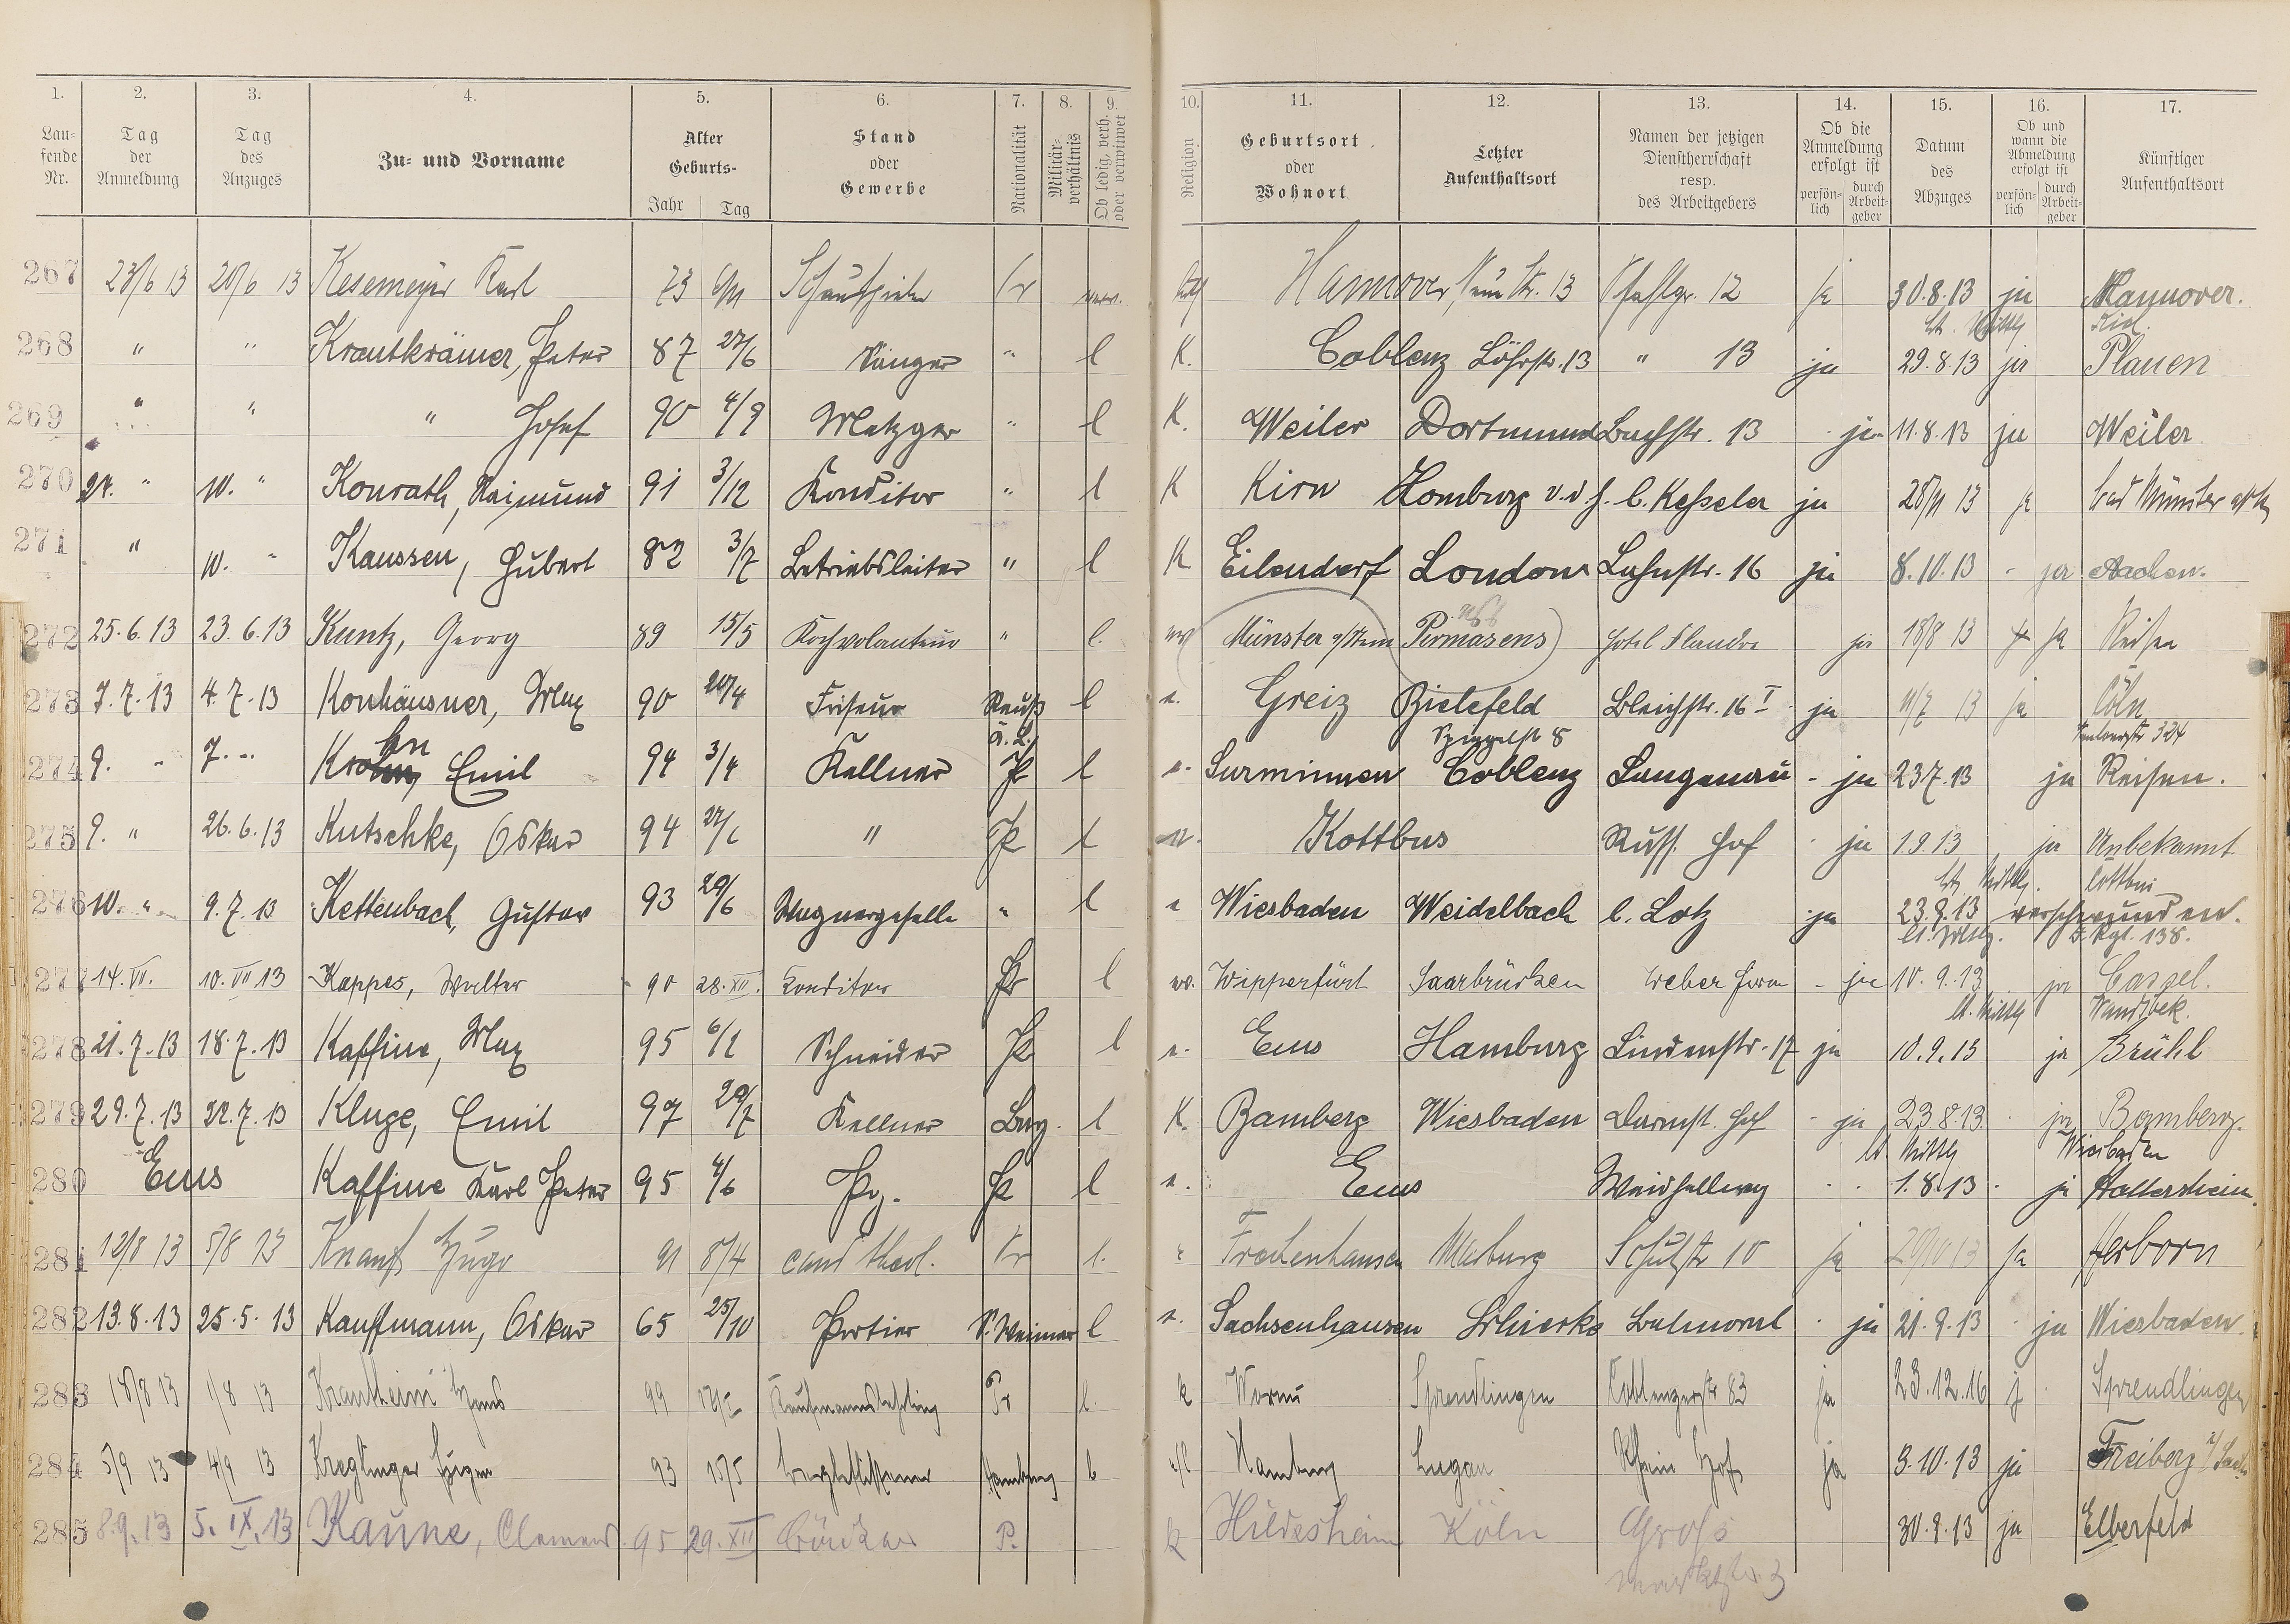 1. 2. 3. 4. 5. 6. 7. 8. 9. 10. 11. 12. 13. 14. 15. 16. 17.
Laufende Nr. Tag der Anmeldung Tag des Anzuges Zu- und Vorname Alter Geburts- Jahr Tag Stand oder Gewerbe Nationalität Militärverhältnis Ob ledig, verh. oder verwitwet Religion Geburtsort oder Wohnort Letzter Aufenthaltsort Namen der jetzigen Dienstherrschaft resp. des Arbeitgebers Ob die Anmeldung erfolgt ist persönlich durch Arbeitgeber Datum des Abzuges Ob und wann die Abmeldung erfolgt ist persönlich durch Arbeitgeber Künftiger Aufenthaltsort
267 23/6 13 20/6 13 Kesemeyer Karl 73 Schauspieler Pr Hannover 13 12 ja 30.8.13 ja Hannover.
Kiel.
268 " " Krautkrämer, Peter 87 27/6 Sänger " l K. Coblenz Löhrstr. 13 " 13 ja 29.8.13 ja Plauen
269 " " " Josef 90 4/9 Metzger " l K. Weiler Dortmund Bachstr. 13 ja 11.8.13 ja Weiler
270 24. " 10. " Konrath, Raimund 91 3/12 Konditor " l K Kirn Homburg v. d. H. b. Keßeler ja 28/11 13 ja bad Münster
271 " 10. " Kaussen, Hubert 82 3/7 Betriebsleiter " l K Eilendorf London Lahnstr. 16 ja 8.10.13 - ja Aachen.
272 25.6.13 23.6.13 Kuntz, Georg 89 15/5 Kochvolonteur " l. Münster a/Stein Pirmasens Hotel Flandre ja 18/8 13 ja Reisen
273 7.7.13 4.7.13 Konhäusner, Max 90 20/4 Friseur Reuß ä. L. l e. Greiz Bielefeld Bleichstr. 16 I ja 11/7 13 ja Cöln
Spiegelstr 8 324
274 9. " 7. " Emil 94 3/4 Kellner Pr l e. Surminnen Coblenz Langenau - ja 23.7.13 ja Reisen.
275 9. " 26.6.13 Kutschke, Oskar 94 " Pr l Kottbus Russ. Hof ja 1.9.13 ja Unbekannt
Cottbus
276 10. " 9.7.13 Kettenbach, Gustav 93 29/6 Wagnergeselle " l e Wiesbaden Weidelbach b. Lotz ja 23.9.13 verschwunden.
Rgt. 138.
277 14.VII. 10.VII 13 Kappes, Walter 90 28.XII. Konditor Pr l ev. Wipperfürt Saarbrücken Weber - ja 10.9.13 ja Cassel.
Wandsbek.
278 21.7.13 18.7.13 Kaffine, Max 95 6/1 Schneider Pr l e. Ems Hamburg Lindenstr. 17 ja 10.9.13 ja Brühl
279 29.7.13 22.7.13 Kluge, Emil 97 29/7 Kellner Bay. l K. Bamberg Wiesbaden Darmst. Hof - ja 23.8.13 ja Bamberg.
Wiesbaden
280 Ems Kaffine Karl Peter 95 4/6 Pr l e. Ems 1.8.13 ja Hattersheim
281 12/8 13 5/8 13 Knauf Hugo 91 8/4 cand theol. Pr l. e Marburg Schulstr 10 ja 29/10 13 ja Herborn
282 13.8.13 25.5.13 Kauffmann, Oskar 65 25/10 Portier S. Weimar l e. Sachsenhausen Schierke Balmoral ja 21.9.13 ja Wiesbaden.
283 18/8 13 1/8 13 Krautheim Hans 99 Kaufmannslehrling Pr l. k Worms Sprendlingen Coblenzerstr 83 ja 23.12.16 j Sprendlingen
284 5/9 13 4/9 13 Kreglinger Eugen 93 15/5 Bergbeflissener Hamburg l Hamburg Lugau Rhein Hof ja 3.10.13 ja Freiberg i/Sachs
285 8.9.13 5.IX.13 Kaune, Clemens. 95 29.XII P. k Hildesheim Köln Gross 30.9.13 ja Elberfeld